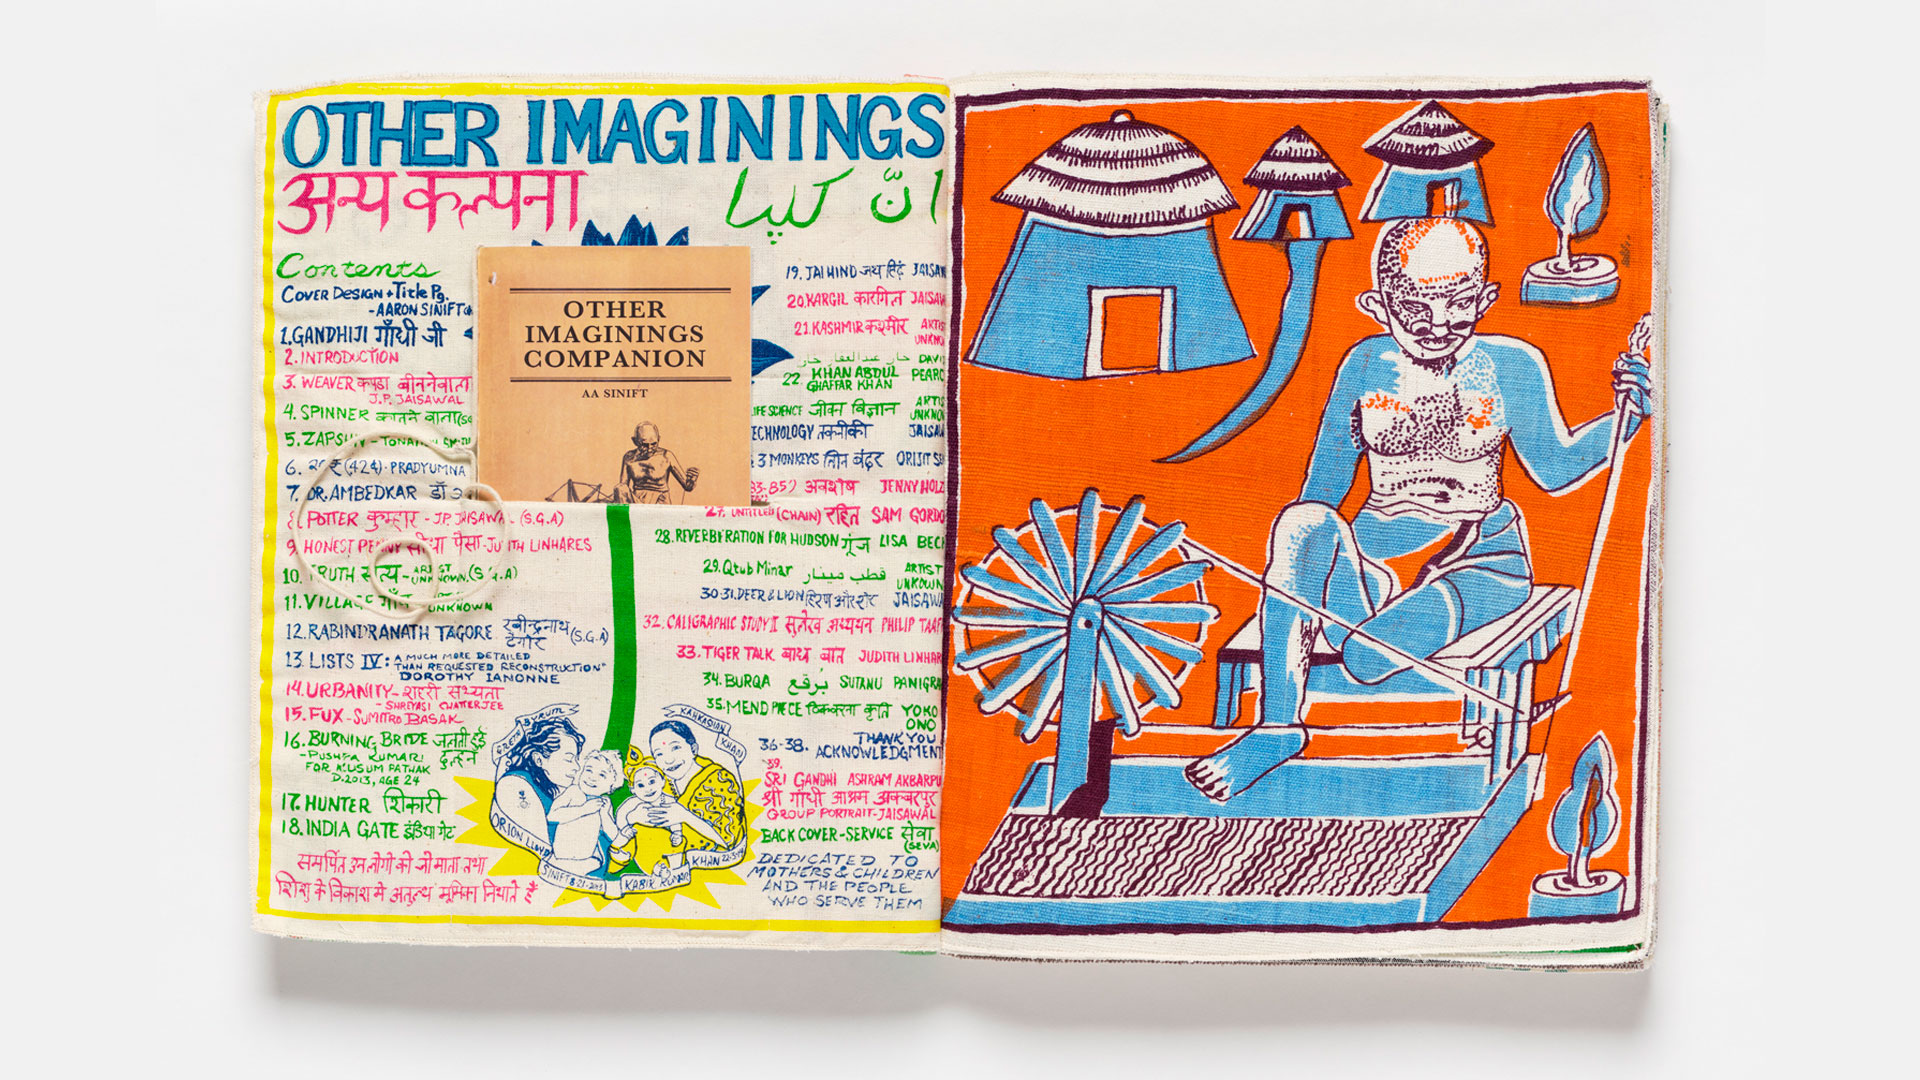 OTHER IMAGININGS
अन्य कल्पना
Contents
COVER DESIGN + Title Pg.
- AARON SINIFT
1. GANDHIJI गाँधी जी
2. INTRODUCTION
3. WEAVER कपड़ा बीननेवाला
J.P. JAISAWAL
4. SPINNER कातने वाला
5. ZAPSUN -
6. (424) - PRADYUMNA
7. DR. AMBEDKAR डॉ
8. POTTER कुम्हार - J.P. JAISAWAL (S.G.A)
9. HONEST PENNY पैसा - JUDITH LINHARES
10. TRUTH सत्य - ARTIST UNKNOWN (S.G.A)
11. VILLAGE गाँव UNKNOWN
12. RABINDRANATH TAGORE रबीन्द्रनाथ टैगोर (S.G.A)
13. LISTS IV: "A MUCH MORE DETAILED
THAN REQUESTED RECONSTRUCTION"
DOROTHY IANONNE
14. URBANITY - शहरी सभ्यता
- SHREYASI CHATTERJEE
15. FUX - SUMITRO BASAK
16. BURNING BRIDE जलती हुई दुल्हन
- PUSHPA KUMARI
FOR KUSUM PATHAK
D. 2013, AGE 24
17. HUNTER शिकारी
18. INDIA GATE इंडिया गेट
OTHER
IMAGININGS
COMPANION
AA SINIFT
19. JAI HIND जय हिंद JAISAW
20. KARGIL कारगिल JAISAW
21. KASHMIR कश्मीर ARTIS
UNKNO
22. KHAN ABDUL GHAFFAR KHAN DAVI PEARC
IFE SCIENCE जीवन विज्ञान ARTIS UNKNOW
ECHNOLOGY तकनीकी JAISAW
3 MONKEYS तीन बंदर ORIJIT SE
83-85) अवशेष JENNY HOLZ
27. UNTITLED (CHAIN) रहित SAM GORDO
28. REVERBERATION FOR HUDSON गूंज LISA BECK
29. Qtub Minar قطب مينار ARTIST
UNKOWN
30-31. DEER & LION हिरण और शेर JAISAWA
32. CALIGRAPHIC STUDY II सुलेख अध्ययन PHILIP TAAF
33. TIGER TALK बाघ बात JUDITH LINHAR
34. BURQA بُرقع SUTANU PANIGRA
35. MEND PIECE कृति YOKO
ONO
36-38. THANK YOU
ACKNOWLEDGMENT
39.
SRI GANDHI ASHRAM AKBARPU
श्री गांधी आश्रम अकबरपुर
GROUP PORTRAIT - JAISAWAL
BACK COVER - SERVICE सेवा
(SEVA)
DEDICATED TO
MOTHERS & CHILDREN
AND THE PEOPLE
WHO SERVE THEM
GRETA BYRUM
KAHKASHAN KHAN
ORION LLOYD
SINIFT
KABIR KUMAR
KHAN
समर्पित उन लोगों की जो माता तथा
शिशु के विकास में अतुल्य भूमिका निभाते हैं